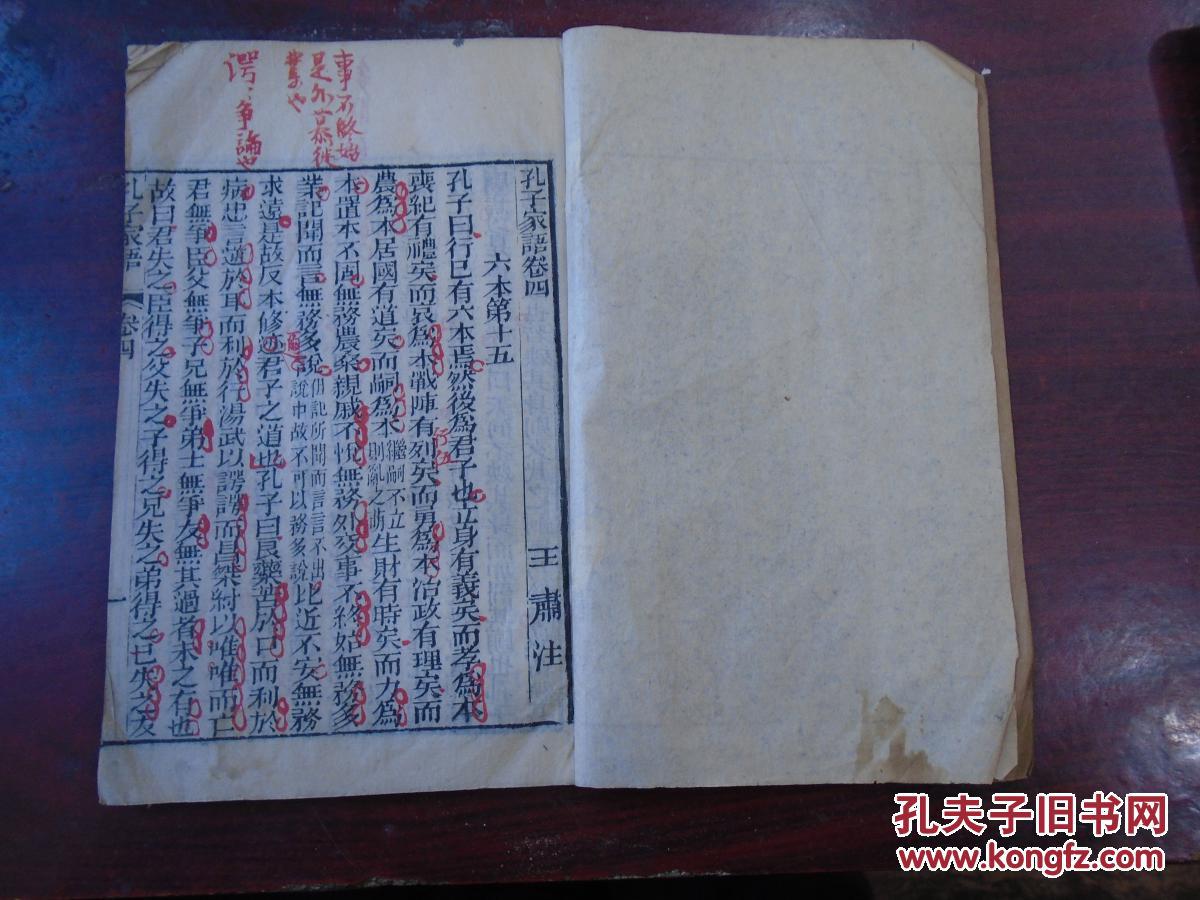 孔子家語卷四
王肅注
六本第十五
孔子曰行己有六本焉然後為君子也立身有義矣而孝為本
喪紀有禮矣而哀為本戰陣有列矣而勇為本治政有理矣而
農為本居國有道矣而嗣為本繼嗣不立則亂之萌生財有時矣而力為
本置本不固無務農桑親戚不悅無務外交事不終始無務多
業記聞而言無務多說但記所聞而言言不出說中故不可以務多說比近不安無務
求遠是故反本修迹君子之道也孔子曰良藥苦於口而利於
病忠言逆於耳而利於行湯武以諤諤而昌桀紂以唯唯而亡
君無爭臣父無爭子兄無爭弟士無爭友無其過者未之有也
故曰君失之臣得之父失之子得之兄失之弟得之己失之友
孔子家語 卷四 一
事不終始
是外慕徙
業也
諤諤爭論也
行伍
孔夫子旧书网
www.kongfz.com